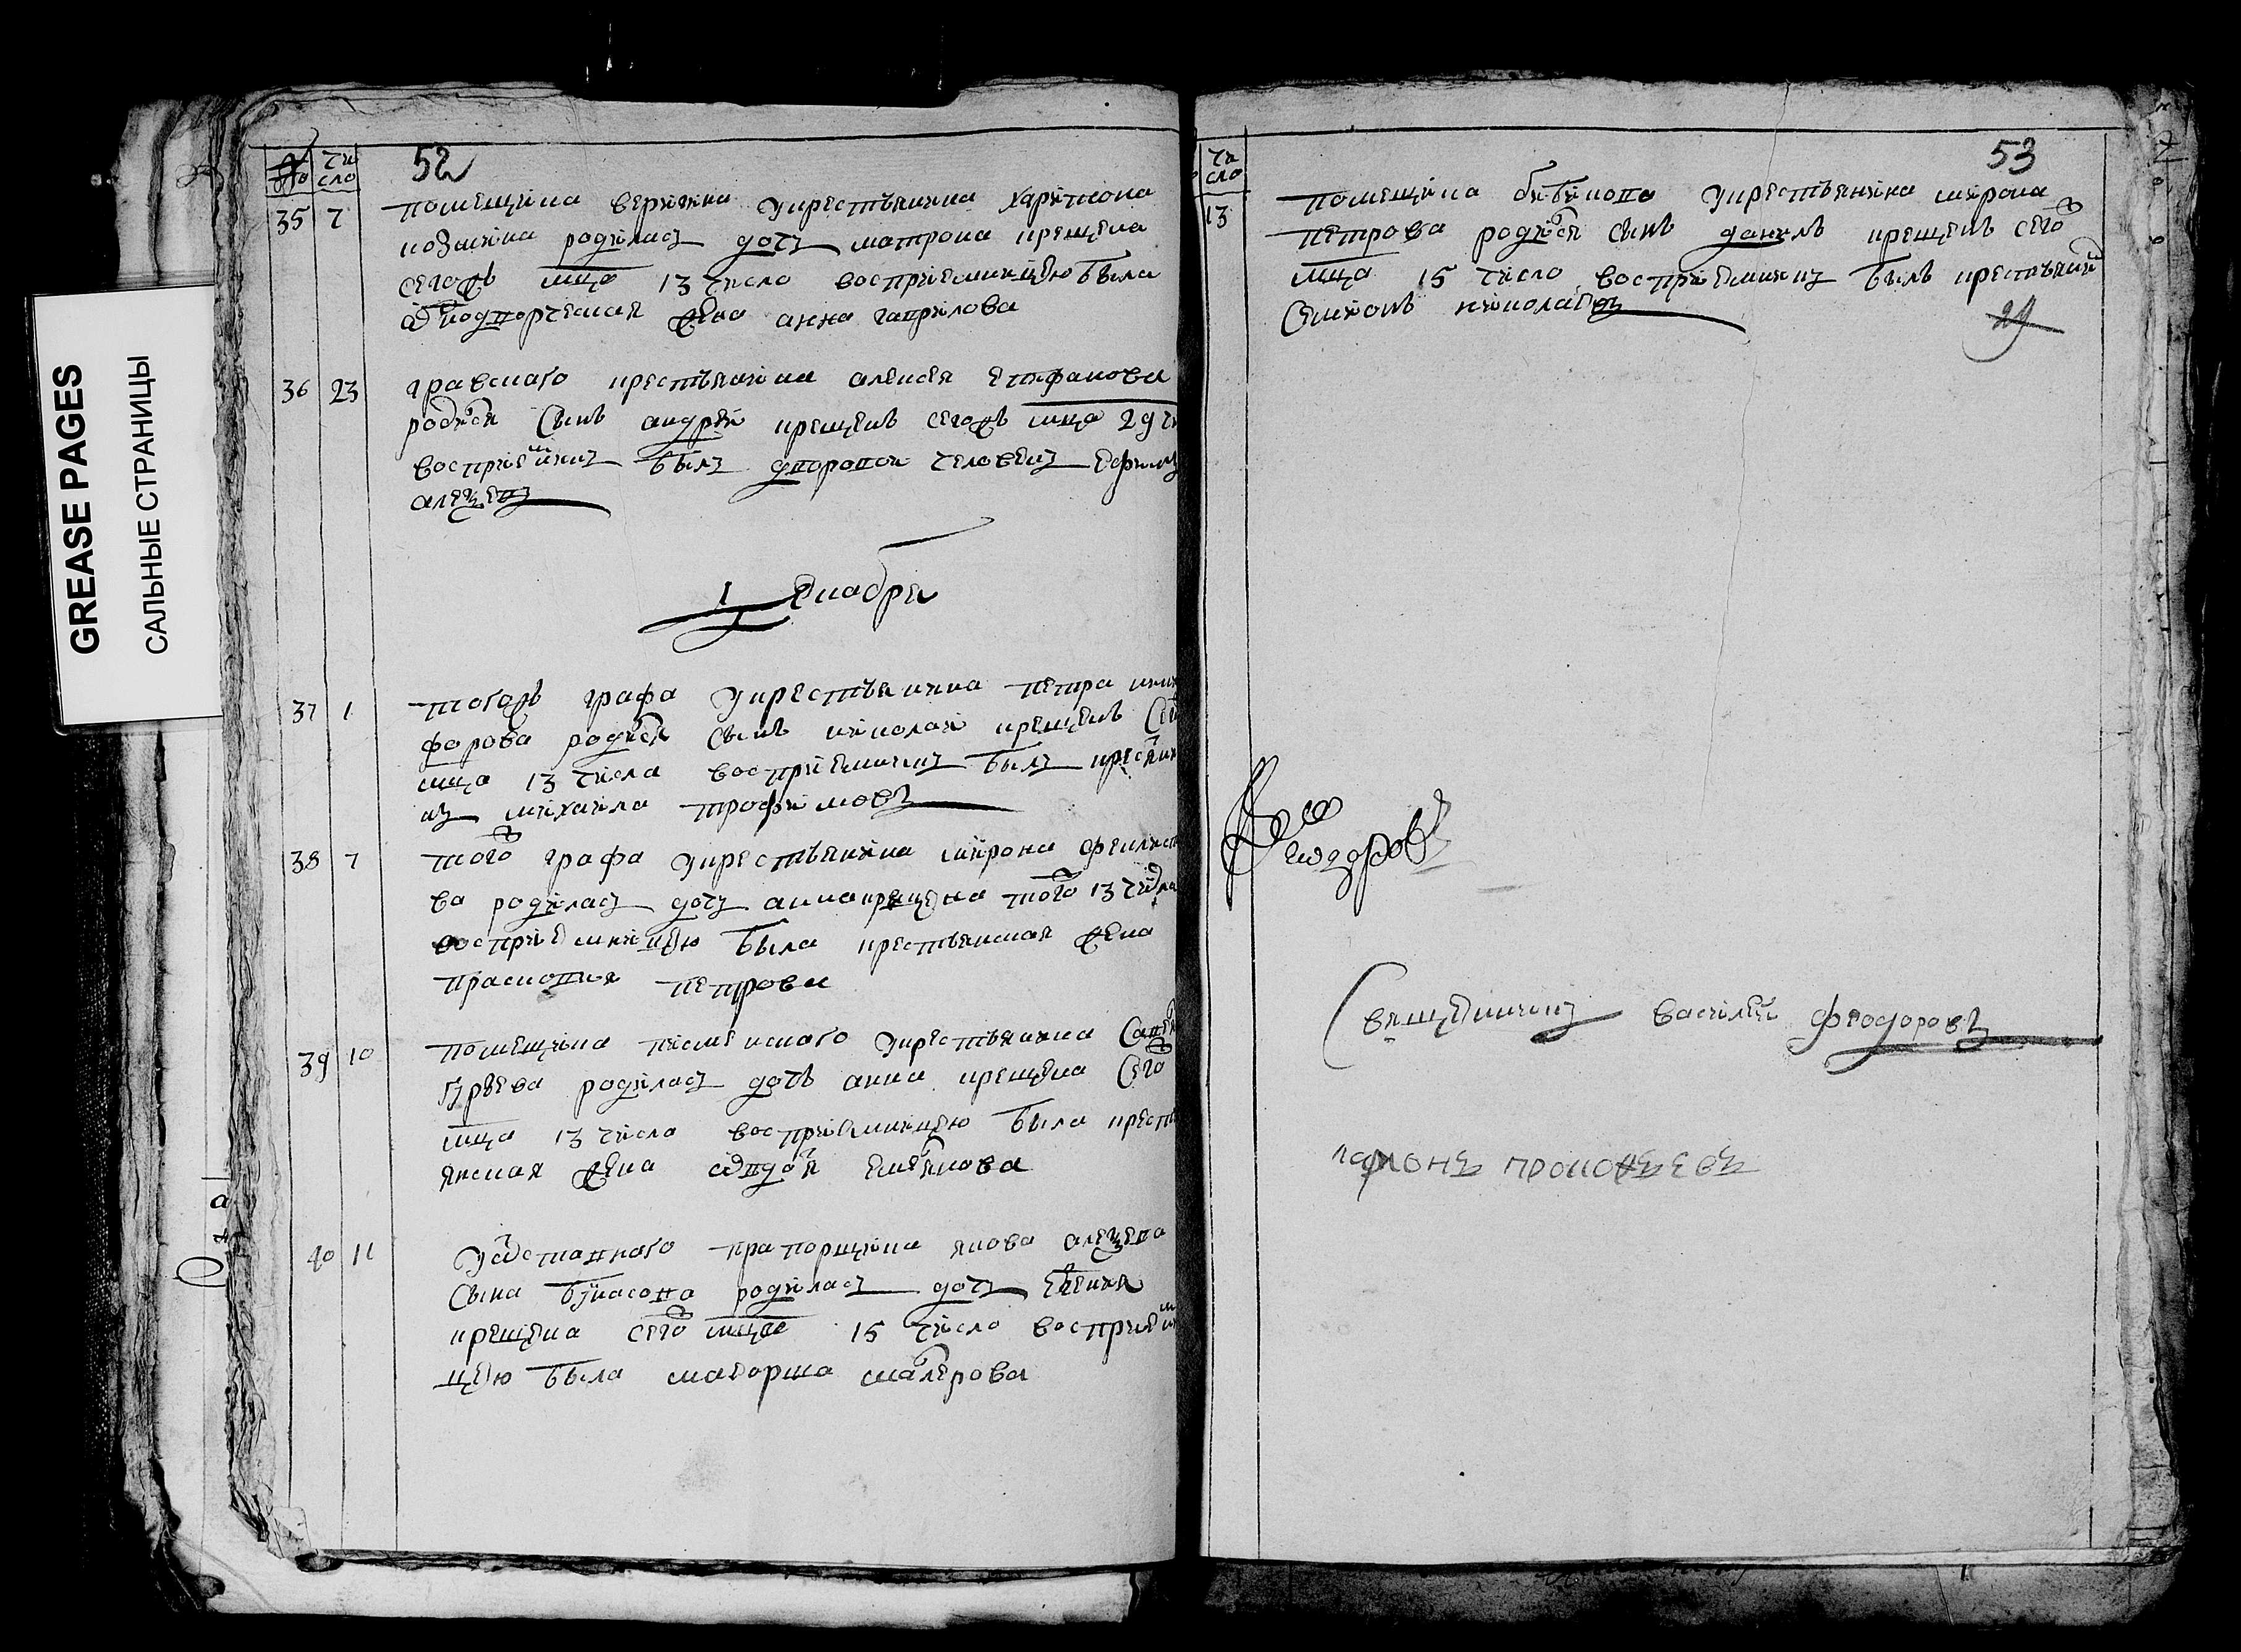 GREASE PAGES
САЛЬНЫЕ СТРАНИЦЫ
число
52
35 7 помещика веригина укрестьянина харитона
козмина родилась дочь матрона крещена
сегожъ мца 13 число восприемницею была
жена анна гаврилова
36 23 гравского крестьянина алексея епифанова
родися сынъ андрей крещенъ сегожъ мца 29
восприемникъ былъ дворовой человекъ ефимъ
алезевъ
Декабря
37 1 тогожъ графа укрестьянина петра ники
форова родися сынъ николай крещенъ сего
мца 13 числа восприемникъ былъ крестьянин
михаила трофимовъ
38 7 того графа укрестьянина мирона
ва родилась дочь анна крещена того 13 числа
восприемницею была крестьянская жена
прасковия петрова
39 10 помещика укрестьянина
гурьева родилась дочь анна крещена сего
мца 13 числа восприемницею была крестъ
янская жена авдотя емельянова
40 11 уодставного прапорщика якова
сына родилась дочь
крещена сего мца 15 число восприемни
цею была маиорша
число
53
13 помещика бибикова укрестьянина мирона
петрова родися сынъ данилъ крещенъ сего
мца 15 число восприемникъ былъ крестьянин
семионъ николаевъ
29
священникъ василей феодоровъ